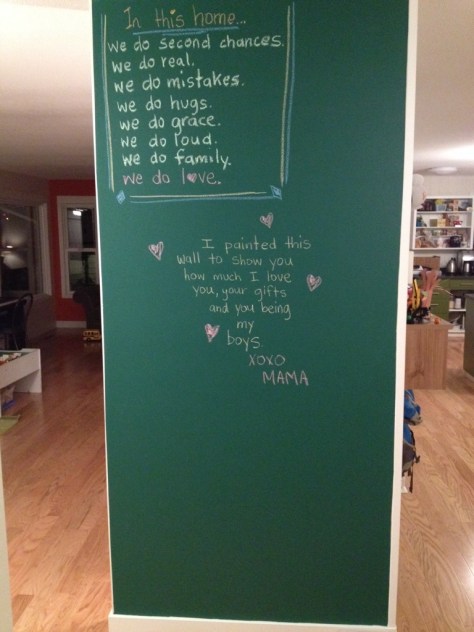 In this home...
we do second chances.
we do real.
we do mistakes.
we do hugs.
we do grace.
we do loud.
we do family.
we do love.
I painted this
wall to show you
how much I love
you, your gifts
and you being
my
boys.
XOXO
MAMA